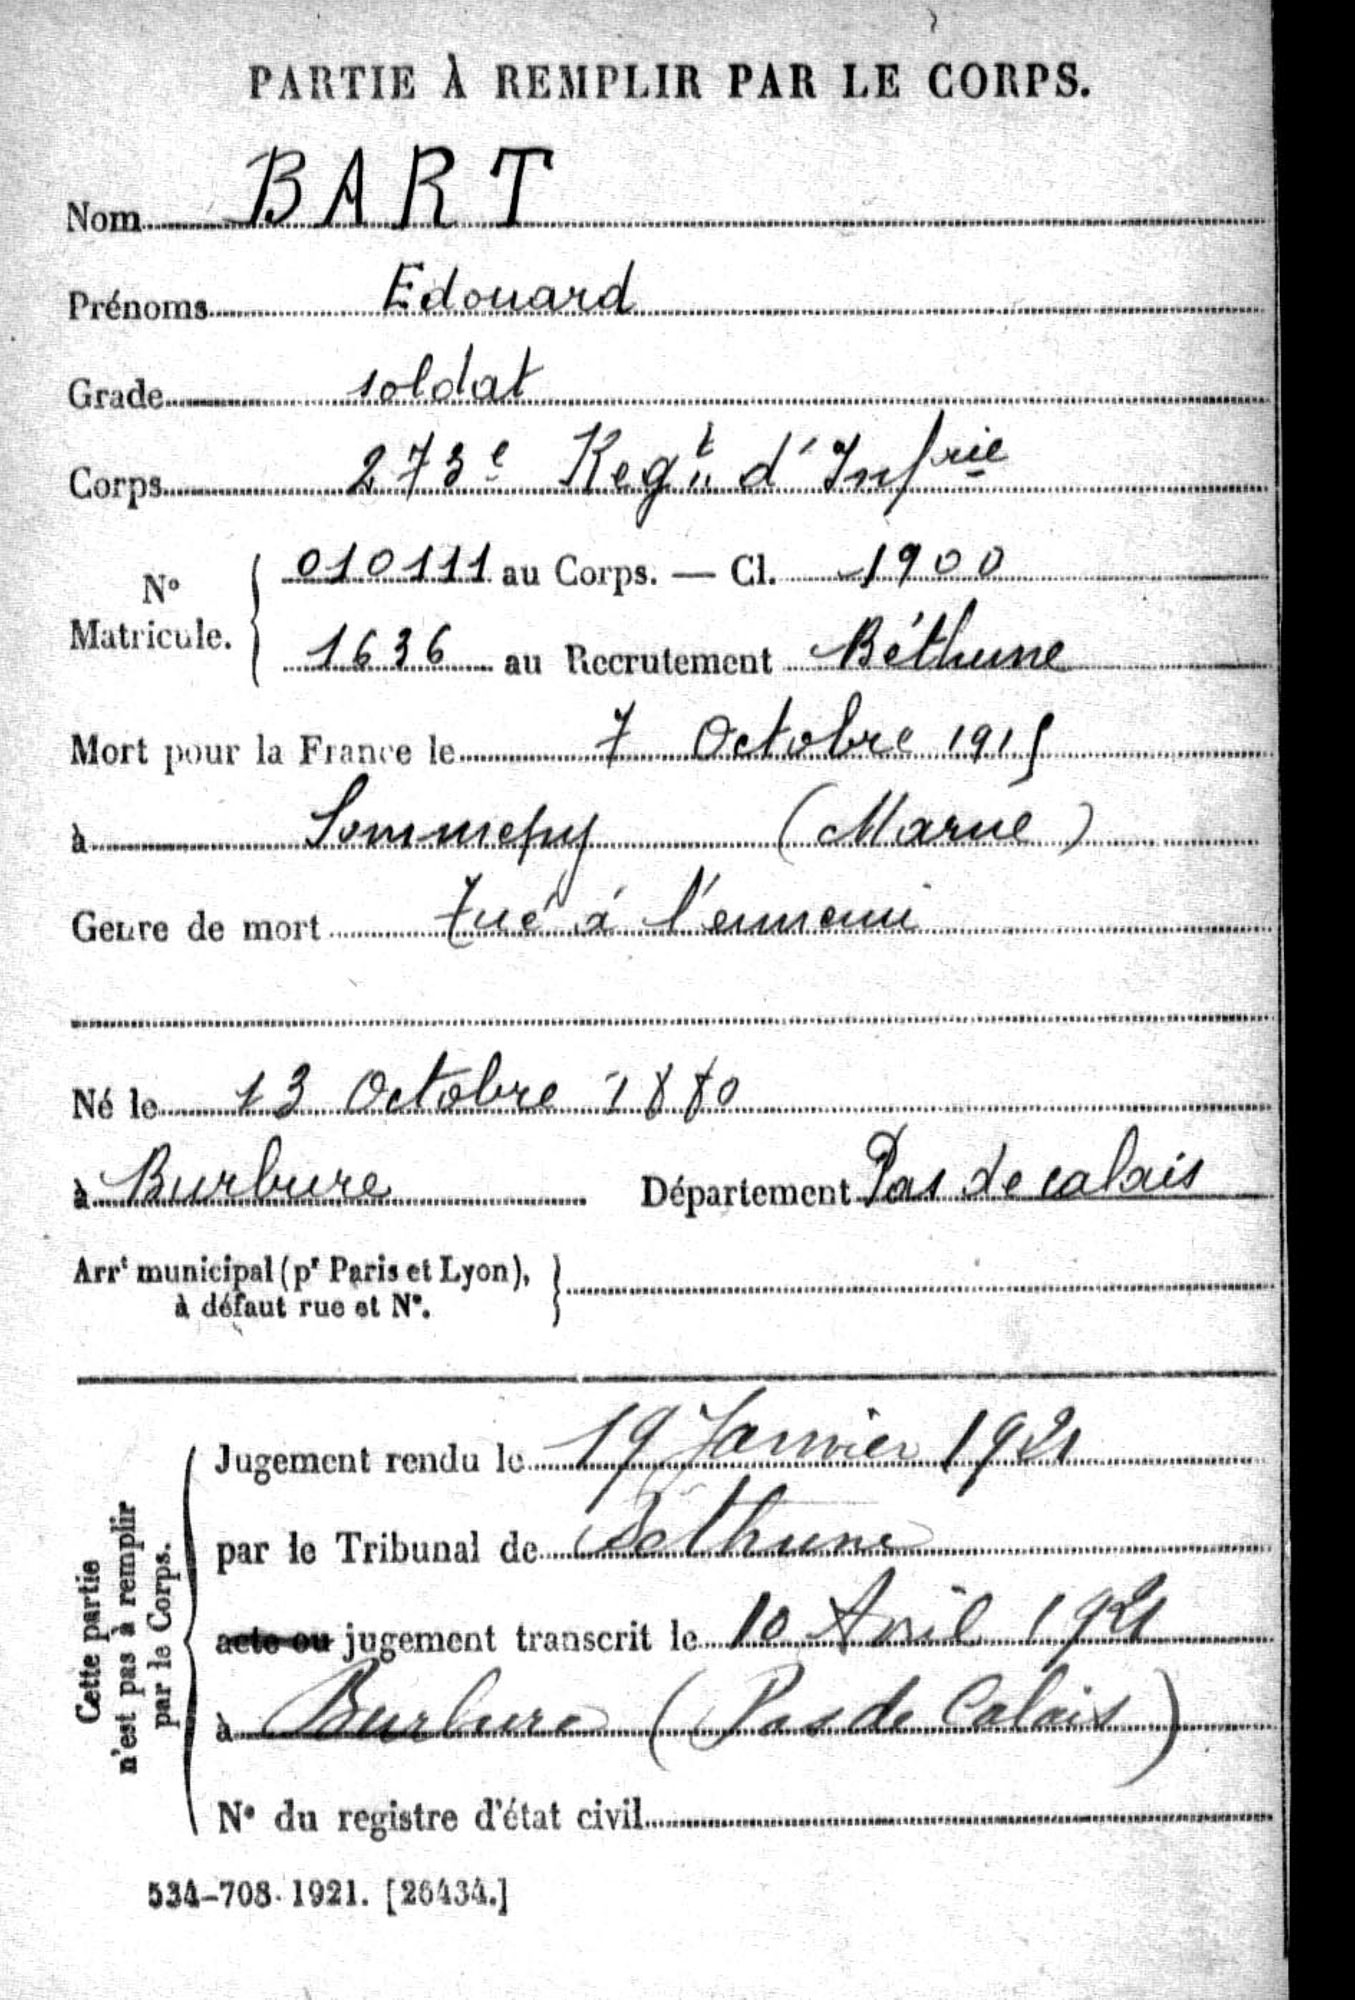 PARTIE À REMPLIR PAR LE CORPS.
Nom BART
Prénoms Edouard
Grade soldat
Corps 273e Regt d'Infrie
No Matricule. 010111 au Corps. — Cl. 1900
1636 au Recrutement Béthune
Mort pour la France le 7 Octobre 1915
à Sommepy (Marne)
Genre de mort tué à l'ennemi
Né le 13 Octobre 1880
à Burbure Département Pas de calais
Arrt municipal (pr Paris et Lyon),
à défaut rue et No.
Cette partie
n'est pas à remplir
par le Corps.
Jugement rendu le 19 Janvier 1921
par le Tribunal de Béthune
acte ou jugement transcrit le 10 Avril 1921
à Burbure (Pas de Calais)
No du registre d'état civil
534-708. 1921. [26434.]